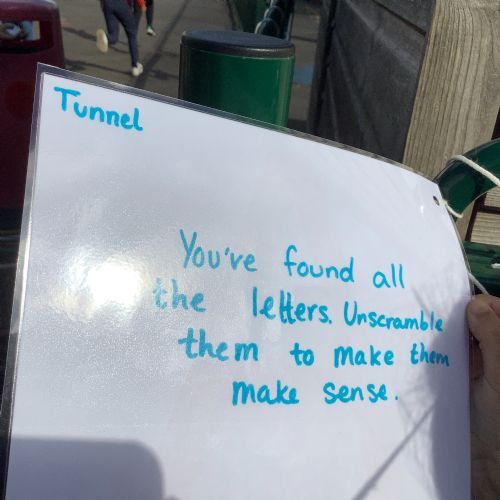 Tunnel
You've found all
the letters. Unscramble
them to make them
make sense.